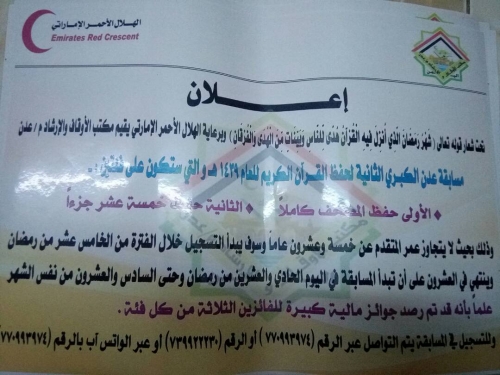 الهلال الأحمر الإماراتي
Emirates Red Crescent
إعـــلان
تحت شعار قوله تعالى ( شهر رمضان الذي أنزل فيه القرآن هدى للناس وبينات من الهدى والفرقان ) وبرعاية الهلال الأحمر الإماراتي يقيم مكتب الأوقاف والإرشاد م / عدن
مسابقة عدن الكبرى الثانية لحفظ القرآن الكريم للعام ١٤٣٩ هـ والتي ستكون على فئتين :ـ
♦ الأولى حفظ المصحف كاملاً ♦ الثانية حفظ خمسة عشر جزءاً
وذلك بحيث لا يتجاوز عمر المتقدم عن خمسة وعشرون عاماً وسوف يبدأ التسجيل خلال الفترة من الخامس عشر من رمضان
وينتهي في العشرون على أن تبدأ المسابقة في اليوم الحادي والعشرين من رمضان وحتى السادس والعشرون من نفس الشهر
علماً بأنه قد تم رصد جوائز مالية كبيرة للفائزين الثلاثة من كل فئة .
وللتسجيل في المسابقة يتم التواصل عبر الرقم (٧٧٠٩٩٣٩٧٤) او الرقم (٧٣٩٩٢٢٢٣٠) او عبر الواتس آب بالرقم (٧٧٠٩٩٣٩٧٤)